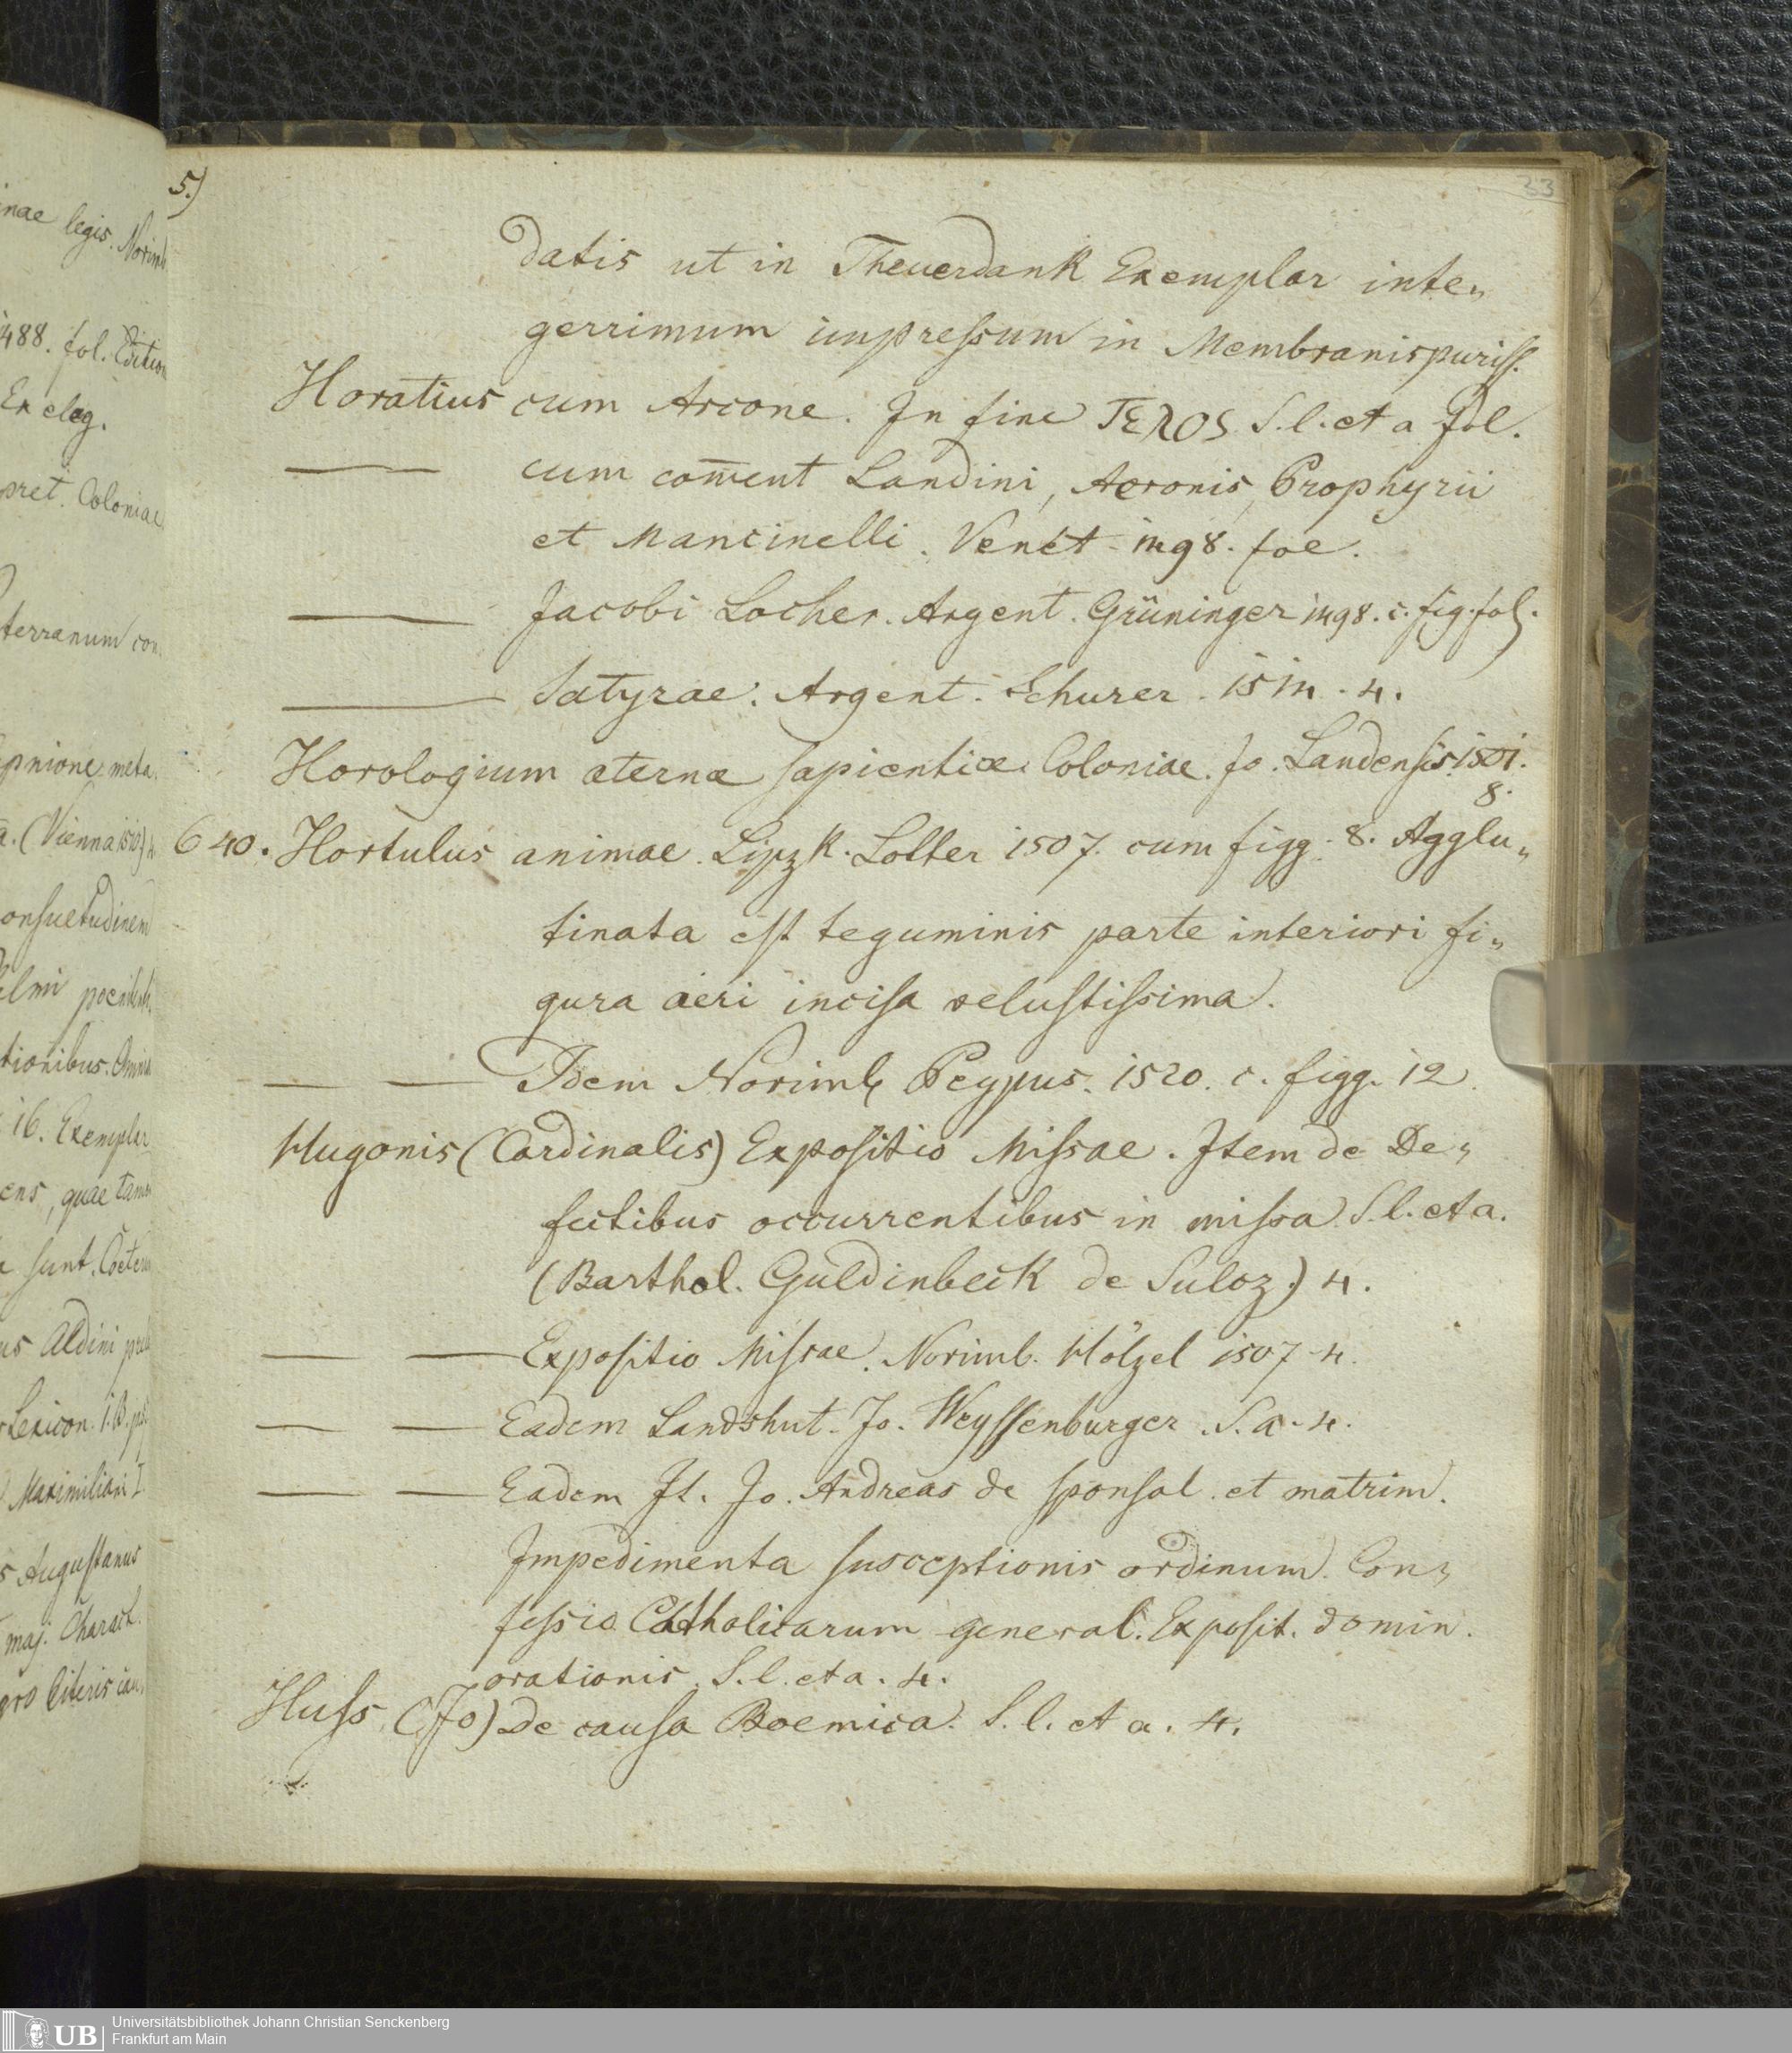 inae legis. Norimb
1488. fol. Edition
Ex eleg.
pret. Coloniae
terranum con
pnione meta
a. (Vienna 1510) 4
onsuetudinem
elmi
tionibus. Omnia
16. Exemplar
ens, quae tamen
sunt. Coeter
us Aldini
Lexicon.
Maximiliani I.
s Augustanus
maj. Charact.
gro literis
5.)
33
datis ut in Theuerdank Exemplar inte„
gerrimum impressum in Membranis puriss.
Horatius cum Arcone. In fine TEΛOS S. l. et a fol.
—— cum com̄ent Landini, Acronis, Prophyrii
et Mancinelli. Venet. 1498. fol.
—— Jacobi Locher. Argent. Grüninger 1498. c. fig. fol.
—— Satyrae. Argent. Schurer. 1514. 4.
Horologium æternæ sapientiæ. Coloniae. Jo. Landensis. 1501.
8.
640. Hortulus animae. Lipzk. Lotter 1507. cum figg. 8. Agglu„
tinata est teguminis parte interiori fi„
gura aeri incisa vetustissima.
— — Idem Norimb Peypus. 1520. c. figg. 12.
Hugonis (Cardinalis) Expositio Missae. Item de De„
fectibus occurrentibus in missa. S. l. et a.
(Barthol. Guldinbeck de Suloz.) 4.
— — Expositio Missae. Norimb. Hölzel 1507. 4.
— — Eadem Landshut. Jo. Weyssenburger. S. a. 4.
— — Eadem It. Jo. Andreas de sponsal. et matrim.
Impedimenta susceptionis ordinum. Con„
fessio Catholicarum general. Exposit. domin.
orationis. S. l. et a. 4.
Huss (Jo) De causa Boemica. S. l. et a. 4.
UB
Universitätsbibliothek Johann Christian Senckenberg
Frankfurt am Main